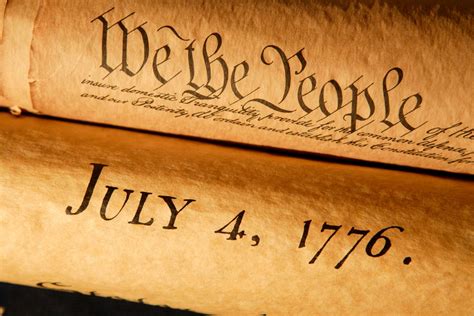 We the People of the
insure domestic Tranquility, provide for the common defence,
and our Posterity, do ordain and establish this Constitution for
July 4, 1776.